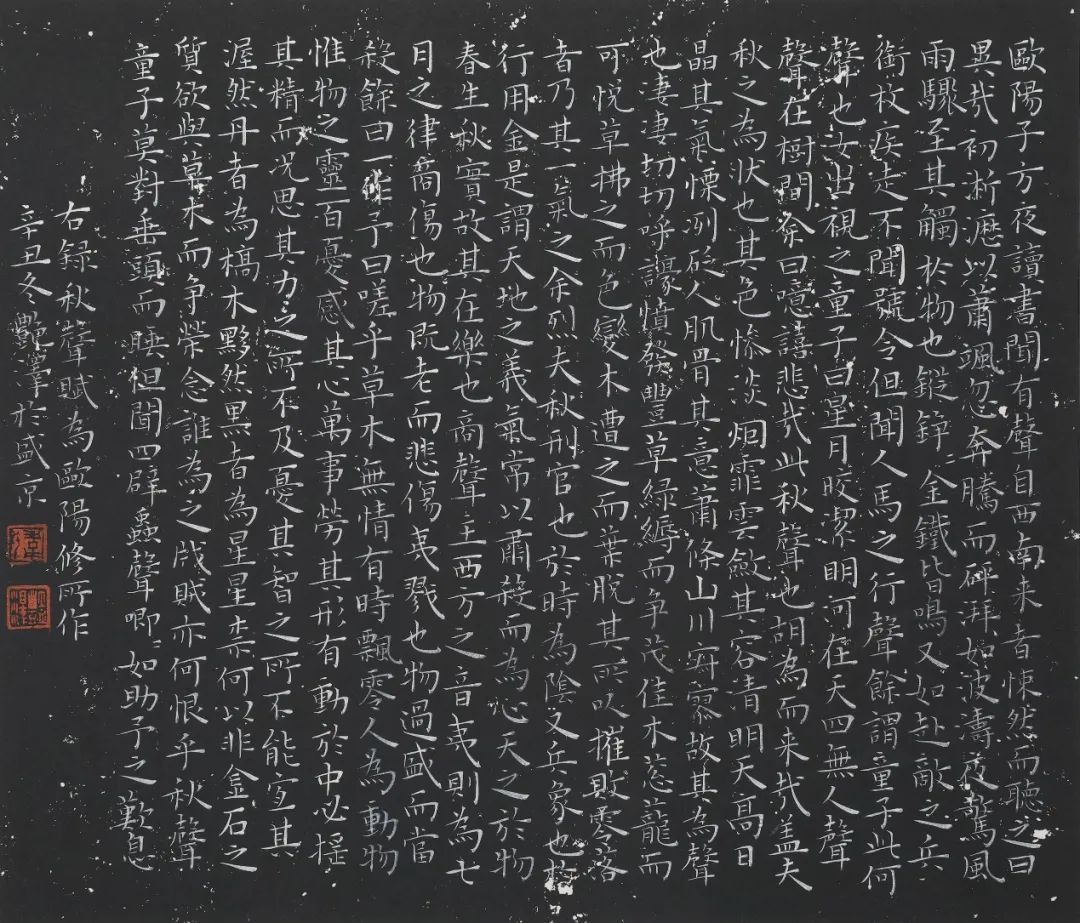 歐陽子方夜讀書聞有聲自西南来者悚然而聽之曰
異哉初淅瀝以蕭颯忽奔騰而砰湃如波濤夜驚風
雨驟至其觸於物也鏦錚金鐵皆鳴又如赴敵之兵
銜枚疾走不聞號令但聞人馬之行聲餘謂童子此何
聲也汝出視之童子曰星月皎潔明河在天四無人聲
聲在樹間余曰噫譆悲哉此秋聲也胡為而来哉盖夫
秋之為狀也其色慘淡烟霏雲斂其容清明天高日
晶其氣慄冽砭人肌骨其意蕭條山川寂寥故其為聲
也凄凄切切呼譹憤發豐草緑縟而争茂佳木葱蘢而
可悦草拂之而色變木遭之而葉脱其所以摧敗零落
者乃其一氣之余烈夫秋刑官也於時為陰又兵象也於
行用金是謂天地之義氣常以肅殺而為心天之於物
春生秋實故其在樂也商聲主西方之音夷則為七
月之律商傷也物既老而悲傷夷戮也物過盛而當
殺餘曰一作予曰嗟乎草木無情有時飄零人為動物
惟物之靈百憂感其心萬事勞其形有動於中必揺
其精而况思其力之所不及憂其智之所不能宜其
渥然丹者為槁木黟然黑者為星星柰何以非金石之
質欲與草木而争榮念誰為之戕賊亦何恨乎秋聲
童子莫對垂頭而睡但聞四壁蟲聲唧唧如助予之歎息
右録秋聲賦為歐陽修所作
辛丑冬艷葦於盛京